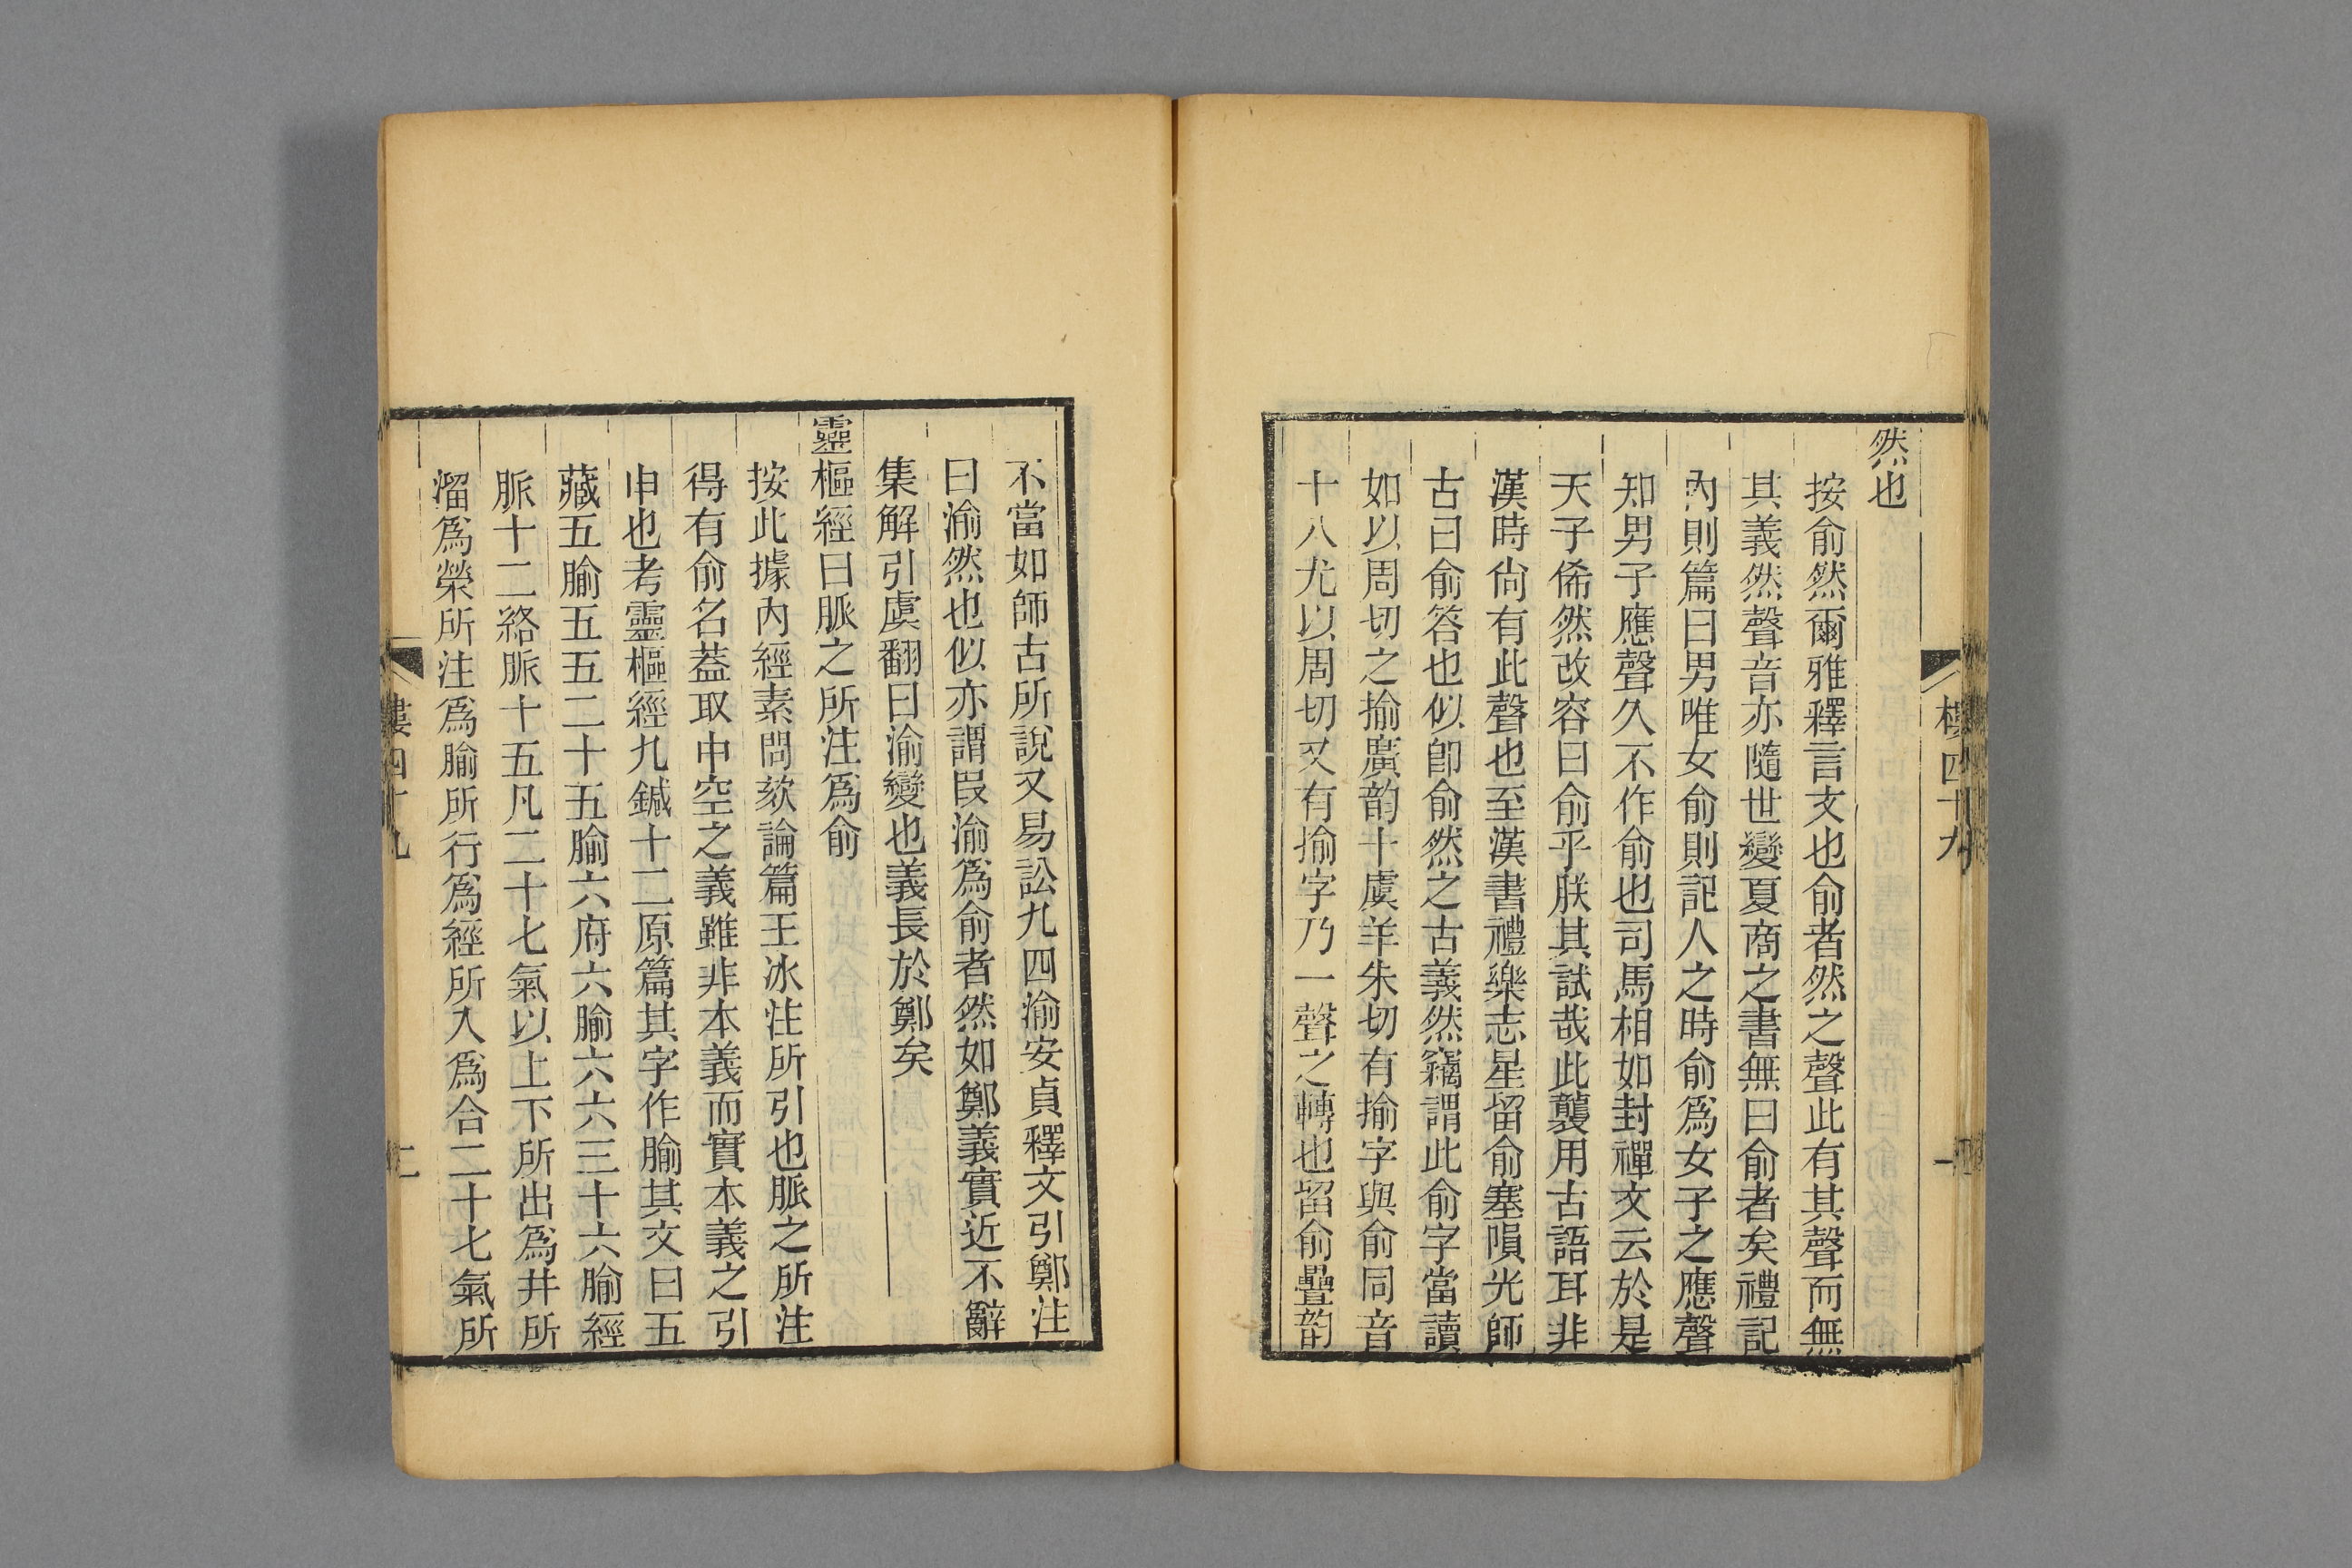 然也
按俞然爾雅釋言文也俞者然之聲此有其聲而無
其義然聲音亦隨世變夏商之書無曰俞者矣禮記
內則篇曰男唯女俞則記人之時俞爲女子之應聲
知男子應聲久不作俞也司馬相如封禪文云於是
天子俙然改容曰俞乎朕其試哉此襲用古語耳非
漢時尙有此聲也至漢書禮樂志星留俞塞隕光師
古曰俞答也似卽俞然之古義然竊謂此俞字當讀
如以周切之揄廣韵十虞羊朱切有揄字與俞同音
十八尤以周切又有揄字乃一聲之轉也留俞疊韵
樓四十九
一
不當如師古所說又易訟九四渝安貞釋文引鄭注
曰渝然也似亦謂叚渝爲俞者然如鄭義實近不辭
集解引虞翻曰渝變也義長於鄭矣
靈樞經曰脈之所注爲俞
按此據內經素問欬論篇王冰注所引也脈之所注
得有俞名蓋取中空之義雖非本義而實本義之引
申也考靈樞經九鍼十二原篇其字作腧其文曰五
藏五腧五五二十五腧六府六腧六六三十六腧經
脈十二絡脈十五凡二十七氣以上下所出爲井所
溜爲滎所注爲腧所行爲經所入爲合二十七氣所
樓四十九
二